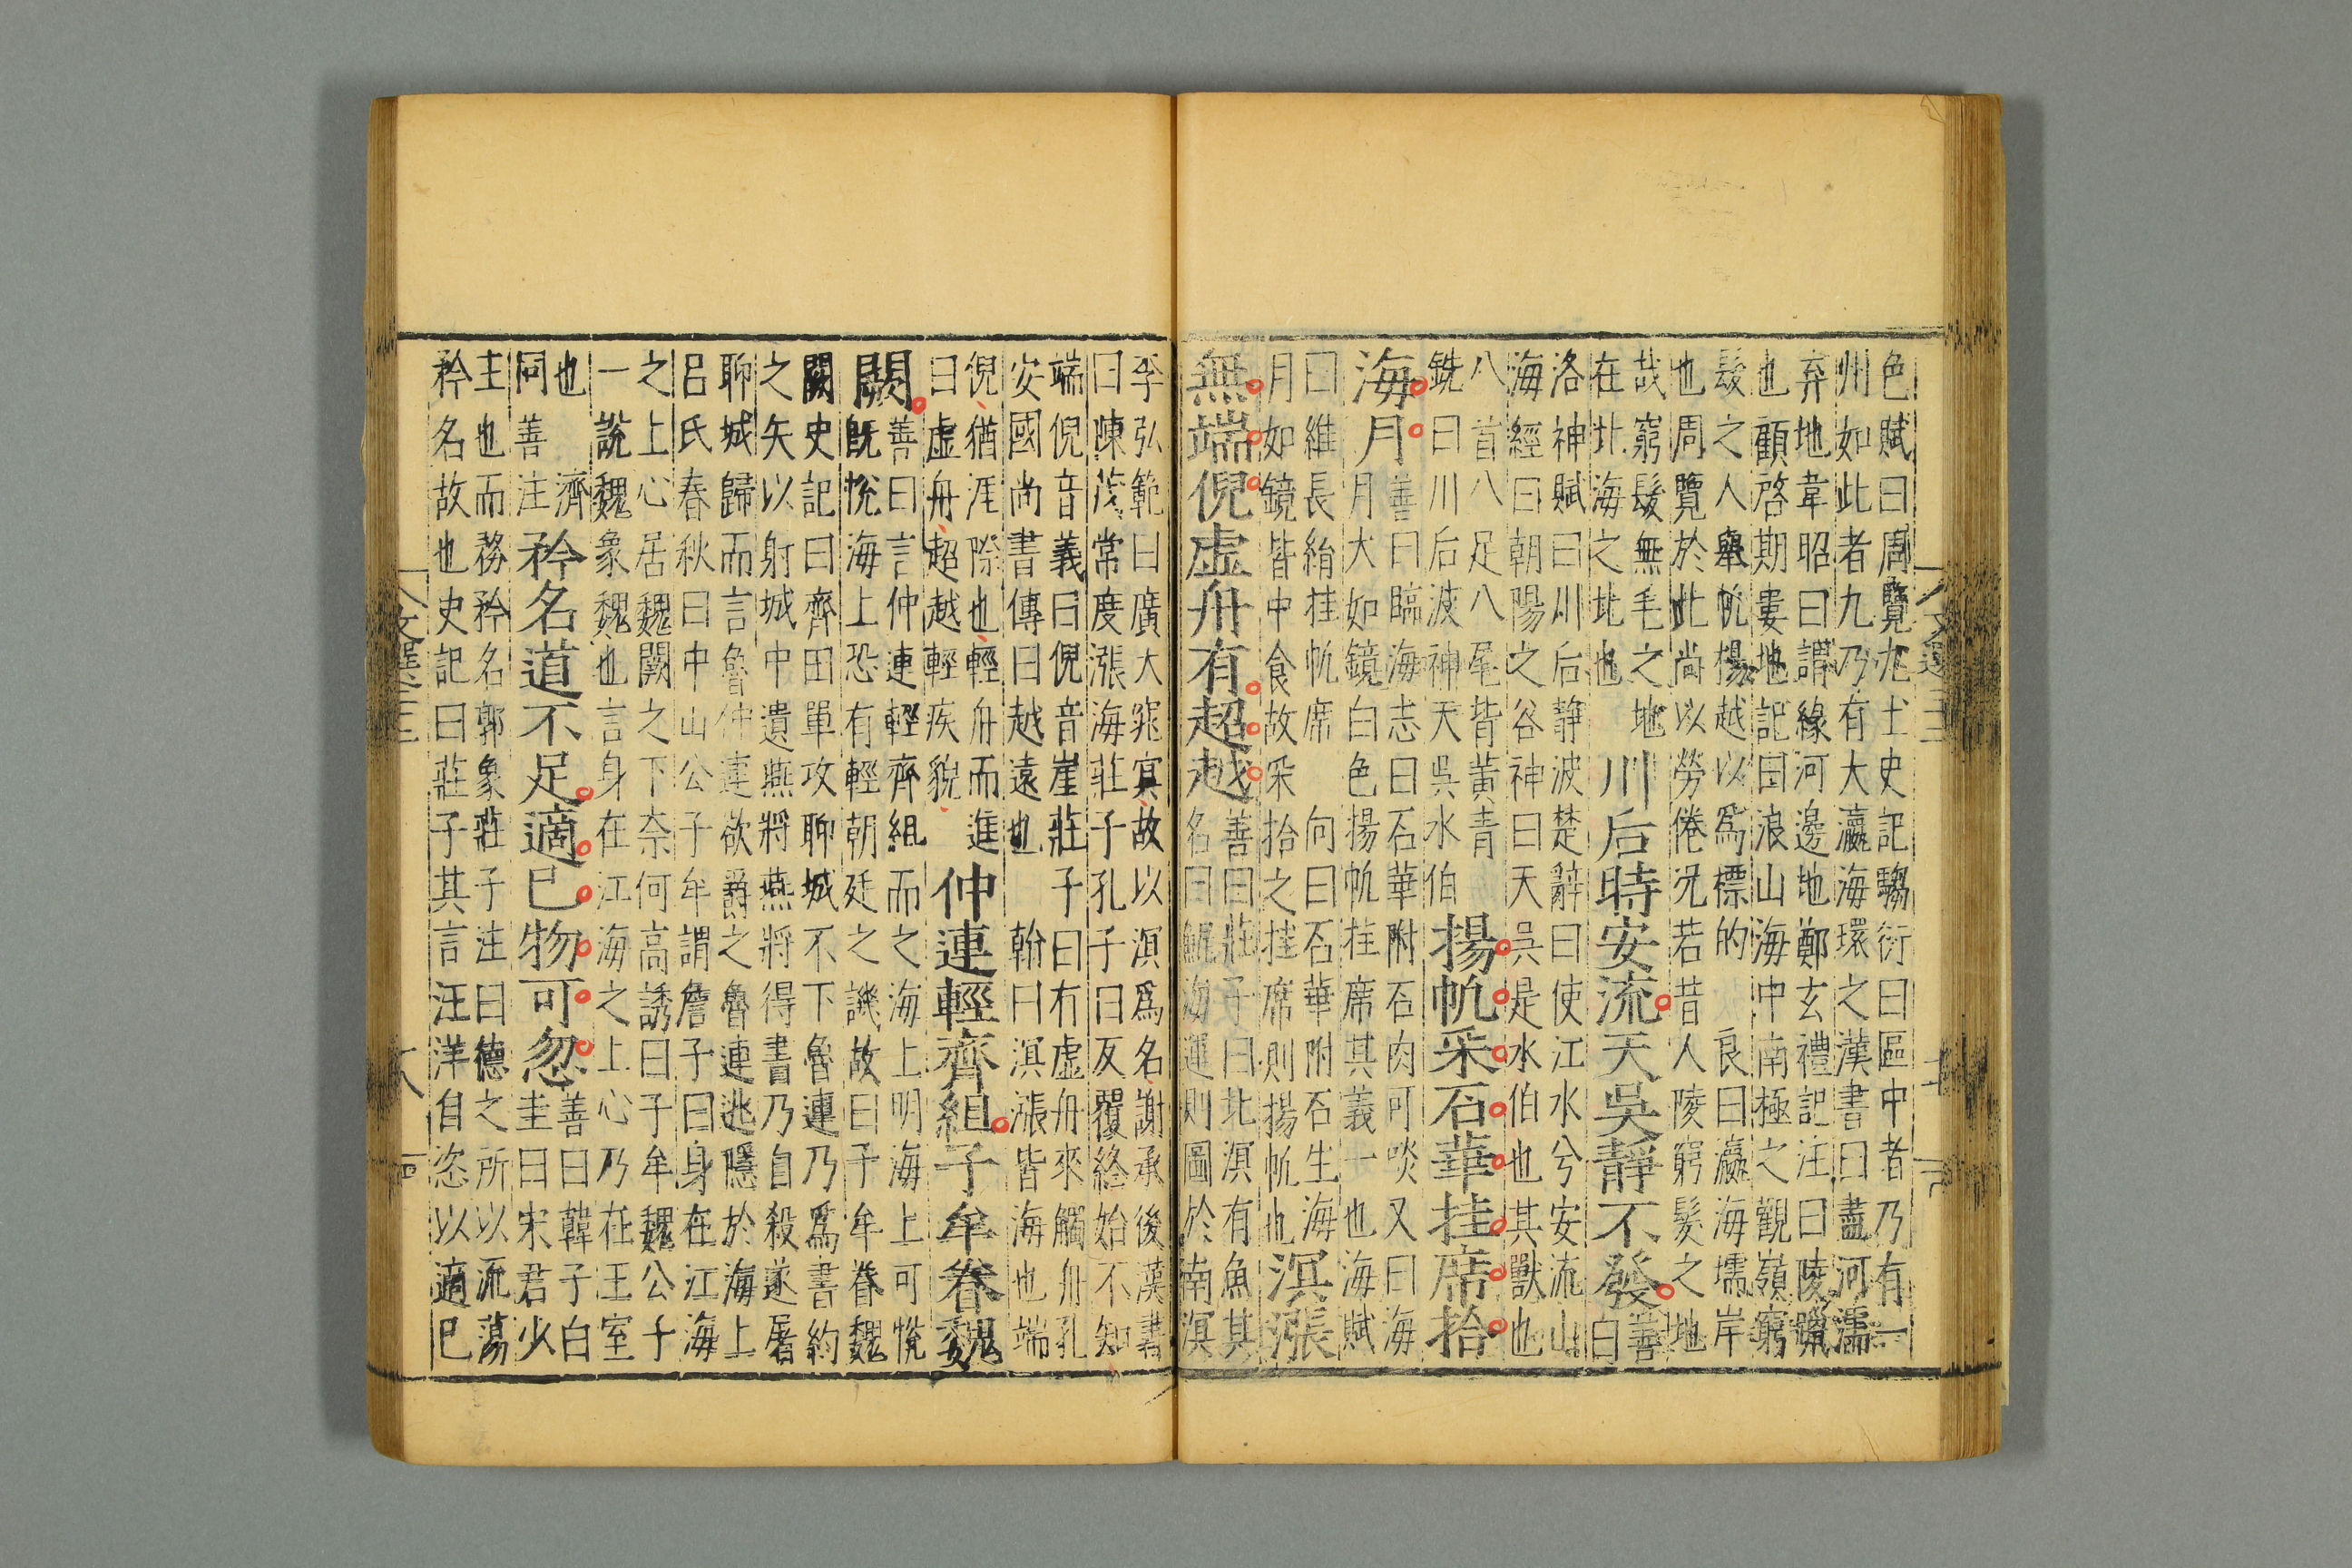 色賦曰周覽九土史記騶衍曰區中者乃有一
州如此者九乃有大瀛海環之漢書曰盡河濡
弃地韋昭曰謂緣河邊地鄭玄禮記注曰陵躐
也顧啓期婁地記曰浪山海中南極之觀嶺窮
髮之人舉帆揚越以爲標的 良曰瀛海壖岸
也周覽於此尚以勞倦况若昔人陵窮髮之地
哉窮髮無毛之地
在北海之北也
川后時安流天吳靜不發
善
曰
洛神賦曰川后靜波楚辭曰使江水兮安流山
海經曰朝陽之谷神曰天吳是水伯也其獸也
八首八足八尾皆黃青
銑曰川后波神天吳水伯
揚帆采石華挂席拾
海月
善曰臨海志曰石華附石肉可啖又曰海
月大如鏡白色揚帆挂席其義一也海賦
曰維長綃挂帆席 向曰石華附石生海
月如鏡皆中食故采拾之挂席則揚帆也
溟漲
無端倪虛舟有超越
善曰莊子曰北溟有魚其
名曰鯤海運則圖於南溟
李弘範曰廣大窕冥故以溟爲名謝承後漢書
曰陳茂常度漲海莊子孔子曰反覆終始不知
端倪音義曰倪音崖莊子曰有虛舟來觸舟孔
安國尚書傳曰越遠也 翰曰溟漲皆海也端
倪猶涯際也輕舟而進
曰虛舟超越輕疾貌
仲連輕齊組子牟眷魏
闕
善曰言仲連輕齊組而之海上明海上可悅
既悅海上恐有輕朝廷之譏故曰子牟眷魏
闕史記曰齊田單攻聊城不下魯連乃爲書約
之矢以射城中遺燕將燕將得書乃自殺遂屠
聊城歸而言魯仲連欲爵之魯連逃隱於海上
呂氏春秋曰中山公子牟謂詹子曰身在江海
之上心居魏闕之下奈何高誘曰子牟魏公子
一說魏象魏也言身在江海之上心乃在王室
也 濟
同善注
矜名道不足適已物可忽
善曰韓子白
圭曰宋君少
主也而務矜名郭象莊子注曰德之所以流蕩
矜名故也史記曰莊子其言汪洋自恣以適已